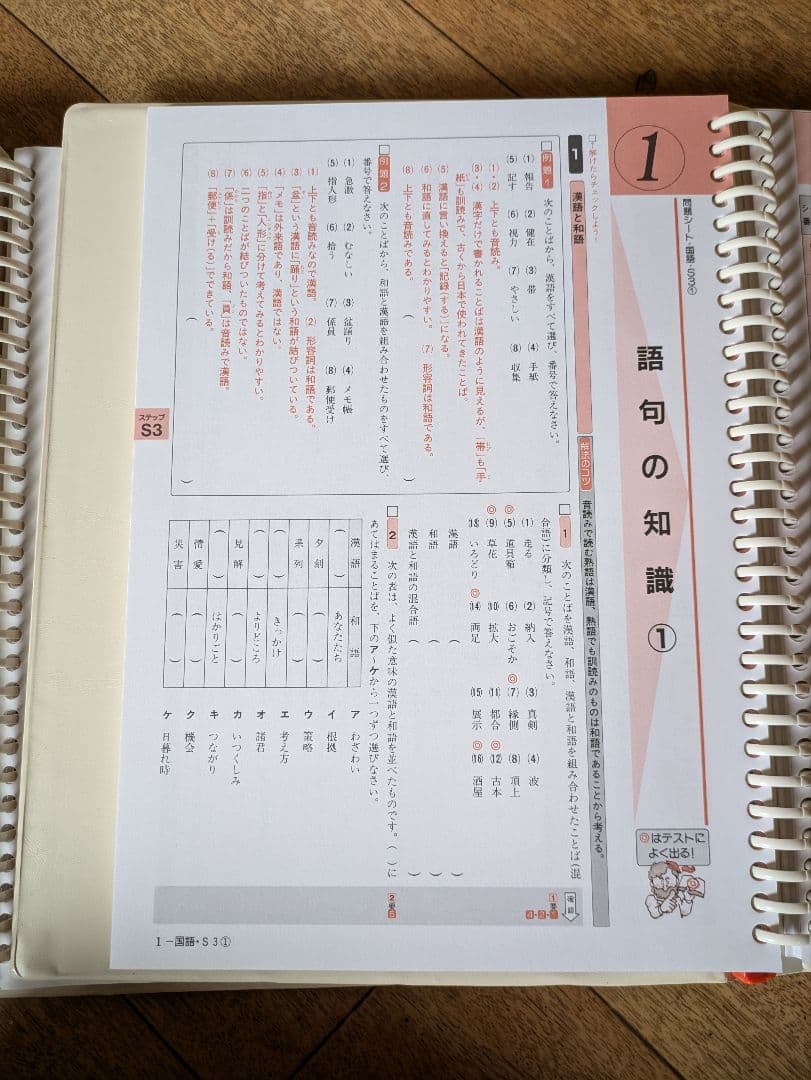 1
問題シート・国語・S3①
語句の知識①
◎はテストによく出る!
□解けたらチェックしよう!
1 漢語と和語
解法のコツ 音読みで読む熟語は漢語、熟語でも訓読みのものは和語であることから考える。
□例題1 次のことばから、漢語をすべて選び、番号で答えなさい。
(1) 報告 (2) 健在 (3) 帯 (4) 手紙
(5) 記す (6) 視力 (7) やさしい (8) 収集
( )
(1)・(2) 上下とも音読み。
(3)・(4) 漢字だけで書かれることばは漢語のように見えるが、「帯」も「手
紙」も訓読みで、古くから日本で使われてきたことば。
(5) 漢語に言い換えると「記録(する)」になる。
(6) 和語に直してみるとわかりやすい。 (7) 形容詞は和語である。
(8) 上下とも音読みである。
□例題2 次のことばから、和語と漢語を組み合わせたものをすべて選び、
番号で答えなさい。
(1) 急激 (2) むなしい (3) 盆踊り (4) メモ帳
(5) 指人形 (6) 拾う (7) 係員 (8) 郵便受け
( )
(1) 上下とも音読みなので漢語。 (2) 形容詞は和語である。
(3) 「盆」という漢語に「踊り」という和語が結びついている。
(4) 「メモ」は外来語であり、漢語ではない。
(5) 「指」と「人形」に分けて考えてみるとわかりやすい。
(6) 二つのことばが結びついたものではない。
(7) 「係」は訓読みだから和語、「員」は音読みで漢語。
(8) 「郵便」+「受け(る)」でできている。
ステップ
S3
□1 次のことばを漢語、和語、漢語と和語を組み合わせたことば(混
合語)に分類し、記号で答えなさい。
(1) 走る (2) 納入 (3) 真剣 (4) 波
◎(5) 道具箱 (6) おごそか ◎(7) 縁側 (8) 項上
◎(9) 草花 (10) 拡大 (11) 都合 ◎(12) 古本
(13) いろどり ◎(14) 両足 (15) 展示 ◎(16) 酒屋
漢語 ( )
和語 ( )
漢語と和語の混合語 ( )
□2 次の表は、よく似た意味の漢語と和語を並べたものです。( )に
あてはまることばを、下のア~ケから一つずつ選びなさい。
漢語 和語
( ) あなたたち
夕刻 ( )
系列 ( )
( ) きっかけ
( ) よりどころ
見解 ( )
( ) はかりごと
情愛 ( )
災害 ( )
ア わざわい
イ 根拠
ウ 策略
エ 考え方
オ 諸君
カ いつくしみ
キ つながり
ク 機会
ケ 日暮れ時
確認
1
2
1-国語・S3①